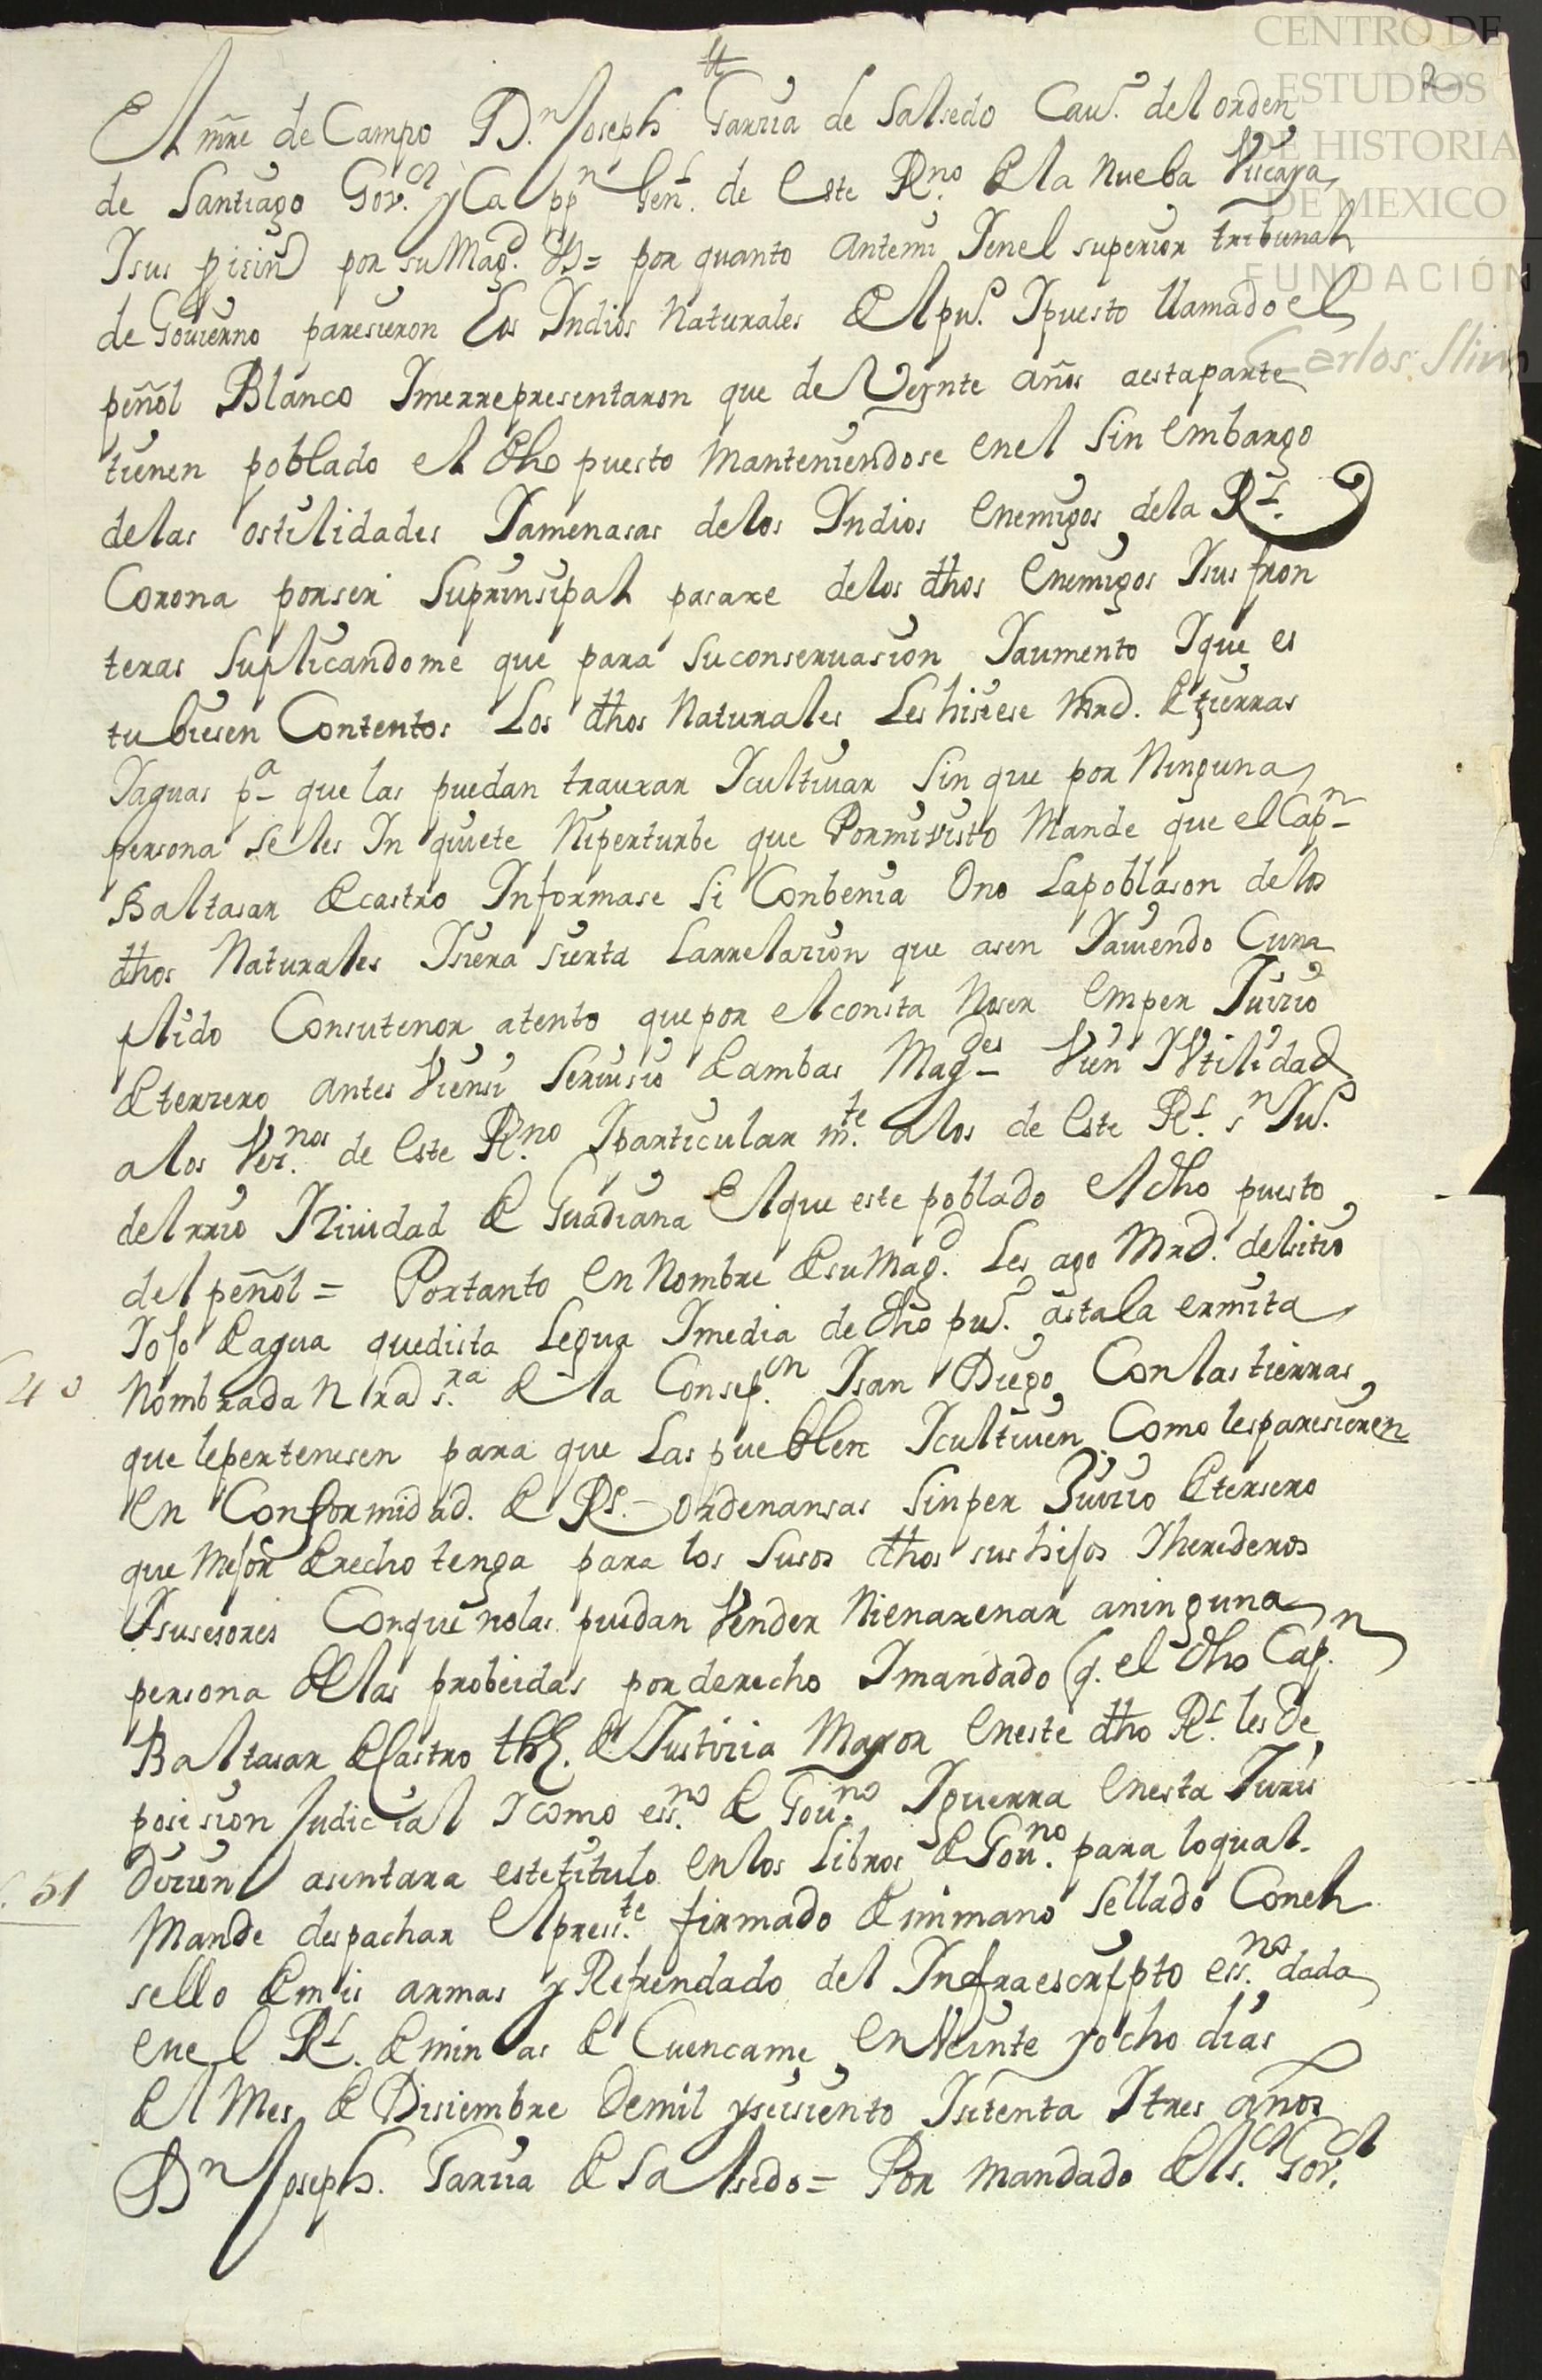 CENTRO DE
ESTUDIOS
DE HISTORIA
DE MEXICO
FUNDACIÓN
Carlos Slim
2
El mre de Campo D.n Joseph Garzia de Salsedo Cau.o del orden
de Santiago Gov.or y Ca pp.n Gen.l de este R.no de la Nueba Viscaya
Y sus por su Mag.d Ds = por quanto Antemi Y en el superior tribunal
de Gouierno paresieron Los Yndios Naturales del pu.o Y puesto llamado el
peñol Blanco Y merrepresentaron que de Veynte años aestaparte
tienen poblado el dho puesto Manteniendose en el sin embargo
de las ostilidades Y amenasas de los Yndios enemigos de la R.l
Corona por ser su prinsipal pasaxe de los dhos enemigos Y sus fron
teras suplicandome que para su conseruasion Y aumento Y que es
tubiesen Contentos Los dhos Naturales Les hisiese Mrd. de tierras
Y aguas p.a que las puedan trauaxar Y cultiuar sin que por Ninguna
persona se les Yn quiete Ni perturbe que Por mi visto Mande que el Cap.n
Baltasar de castro Ynformase si Conbenia O no La poblason de los
dhos Naturales Y siera sierta La rrelazion que asen Y auiendo Cum
plido Con su tenor atento que por el consta No ser em per Juizio
de terzero antes Vien si seruisio de ambas Mag.des Vien Y Vtilidad
a los Vez.nos de este R.no Y particular m.te a los de este R.l s.n Ju.o
del rrio Y Ziuidad de Guadiana El que este poblado el dho puesto
del peñol = Por tanto en Nombre de su Mag.d Les ago Mrd. del sitio
Y ojo de agua que dista Legua Y media de dho pu.o asta la ermita
40
Nombrada Ntra S.ra de la Consep.on Y san Diego Con las tierras
que le pertenesen para que Las pueblen Y cultiuen Como les paresieren
en Conformidad. de R.s ordenansas sin per Juizio de tersero
que Mejor derecho tenga para los susos dhos sus hijos Y herederos
Y susesores Con que no las puedan Vender Ni enaxenar a ninguna
persona de las probeidas por derecho Y mandado q. el dho Cap.n
Baltasar de Castro the. de Justizia Mayor en este dho R.l les de
posesion Judicial Y como ess.no de Gou.no Y guerra en esta Juris
51
dizion asentara este titulo en los Libros de Gou.no para lo qual
Mande despachar el press.te firmado de mi mano sellado Con el
sello de mis armas y Refrendado del Ynfraescripto ess.no dada
en el R.l de minas de Cuencame en Veinte y ocho dias
del Mes de Disiembre de mil y seisiento Y setenta Y tres años
D.n Joseph. Garzia de Salsedo = Por mandado del s.or Gov.or